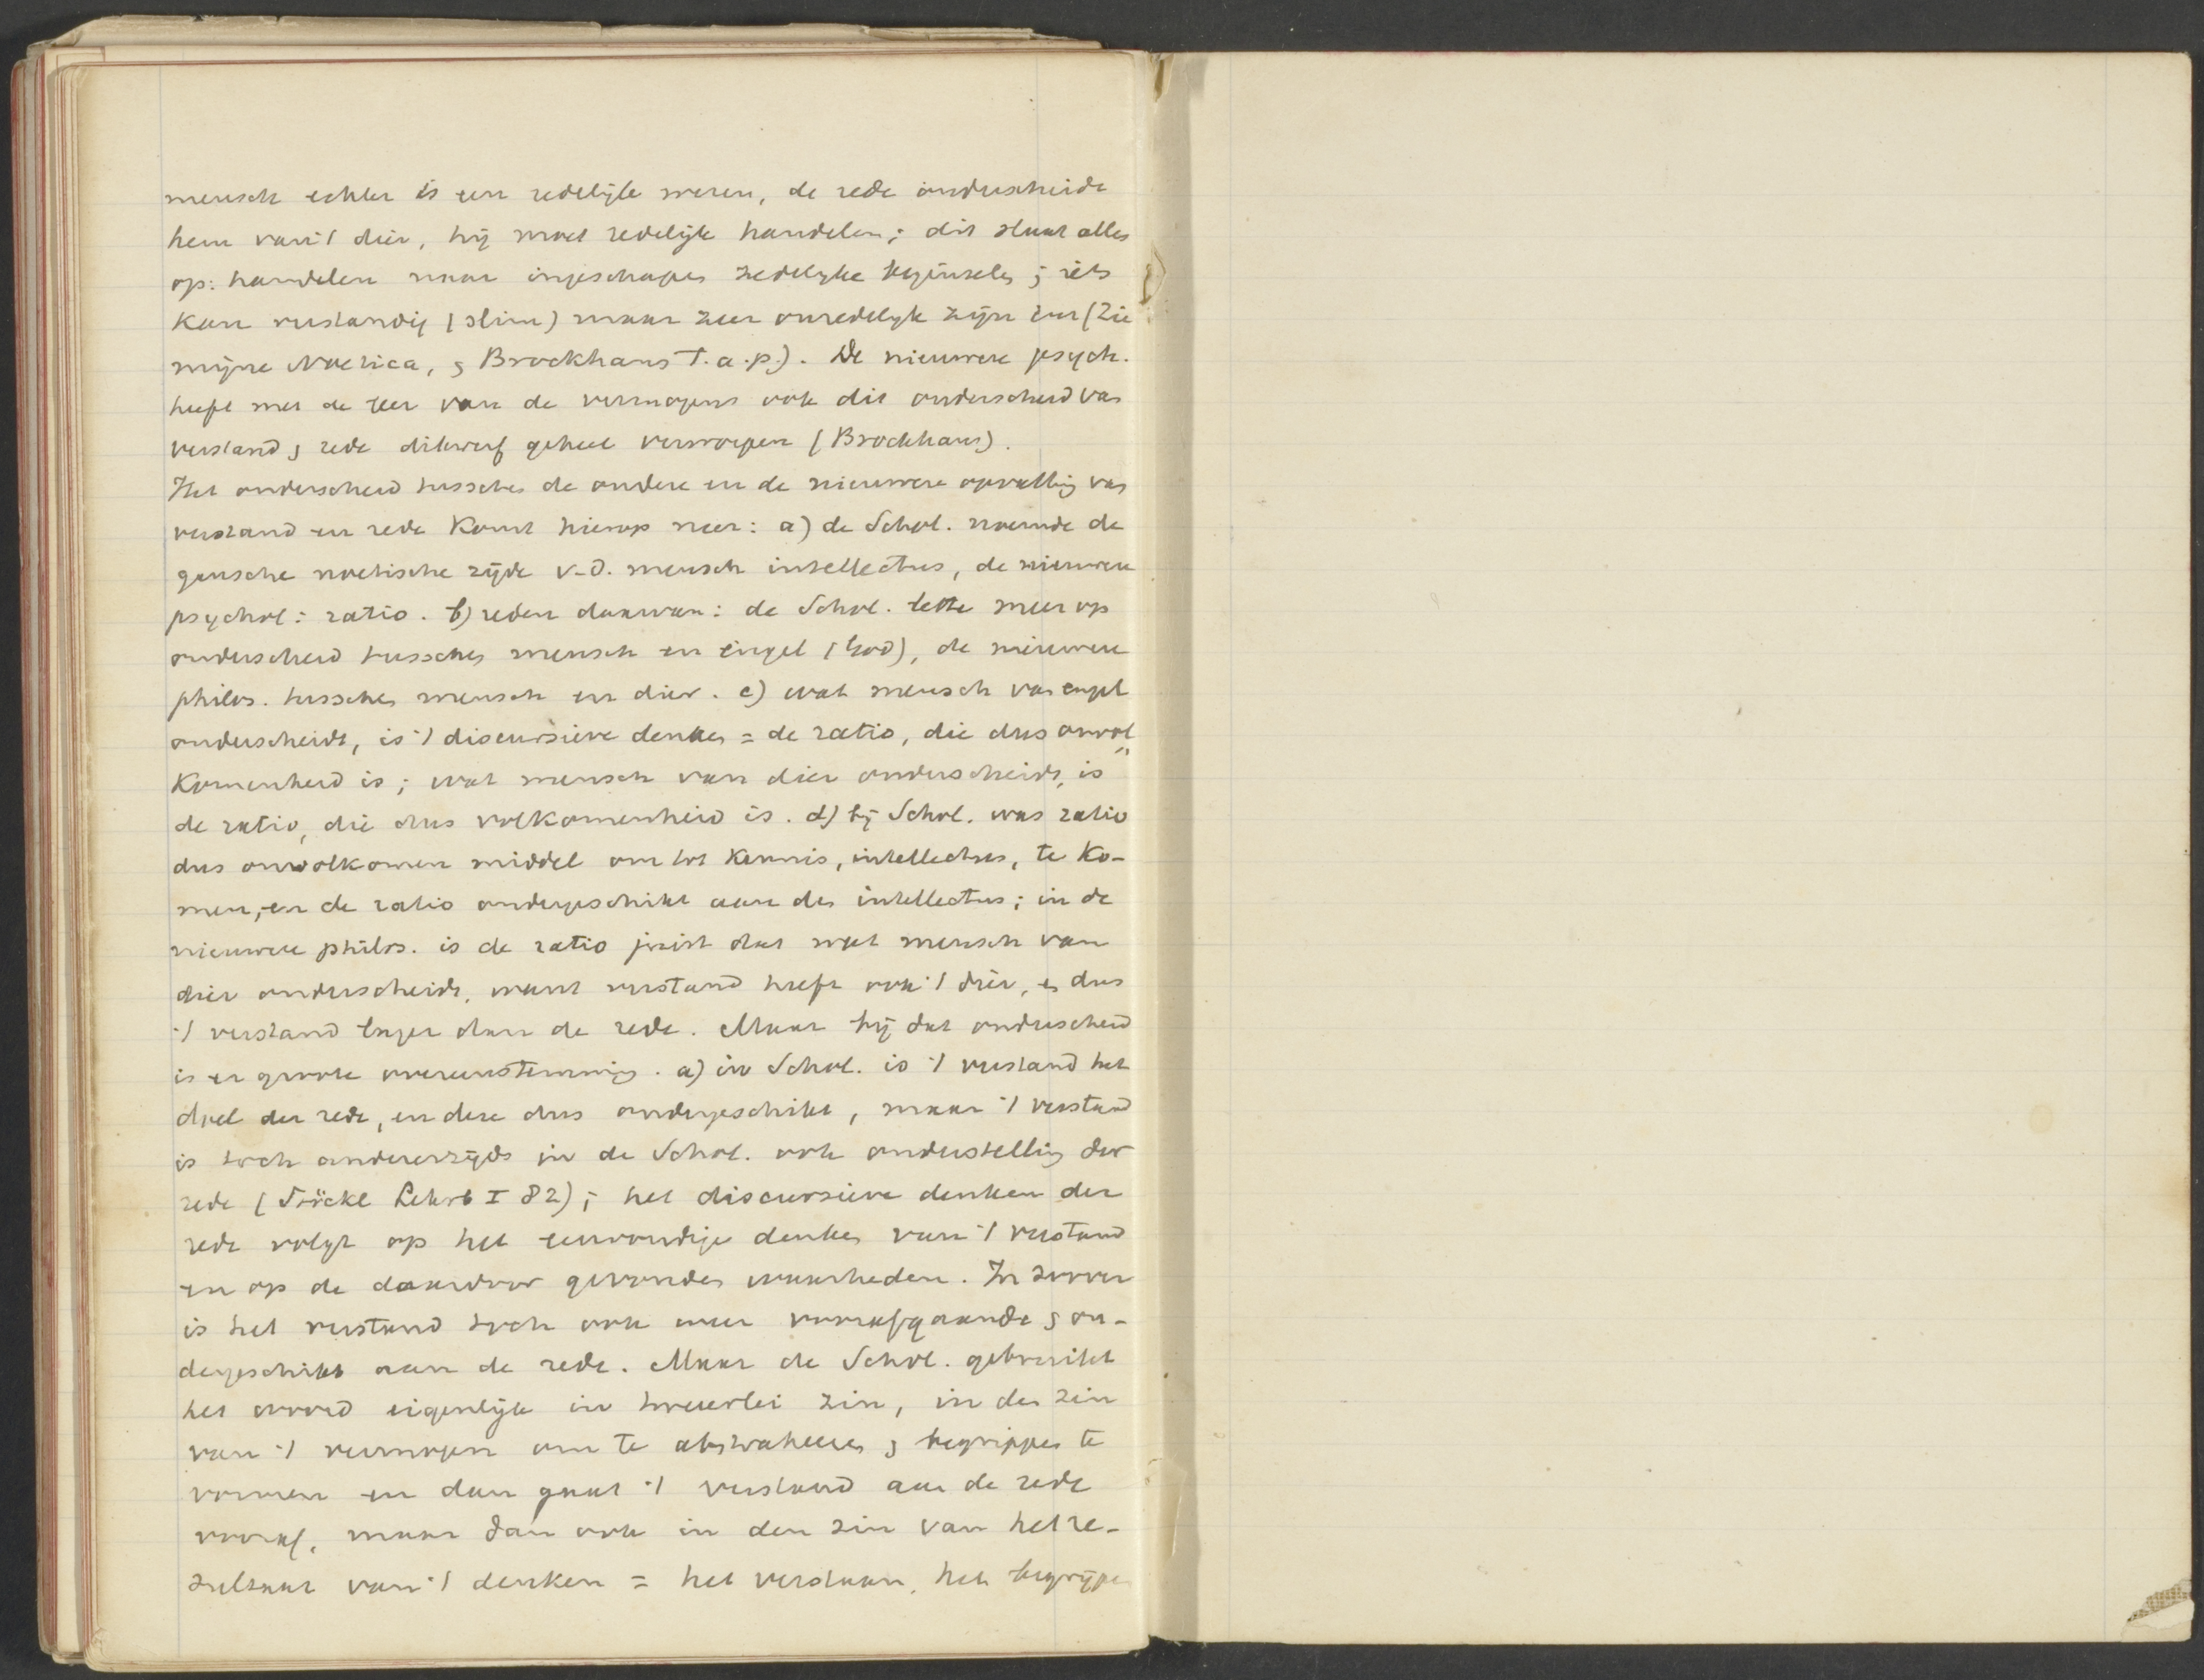 mensch echter is een redelijk wezen, de rede onderscheidt
hem van 't dier, hij moet redelijk handelen; dit sluit alles
op: handelen naar ingeschapen zedelyke beginselen; iets
kan verstandig (slim) maar zeer onredelyk zijn enz (Zie
mijne Noetica, & Brockhaus t.a.p.). De nieuwere psych.
heeft met de leer van de vermogens ook dit onderscheid van
verstand & rede dikwerf geheel verworpen (Brockhaus).
Het onderscheid tusschen de oudere en de nieuwere opvatting van
verstand en rede komt hierop neer: a) de Schol. noemde de
gansche noetische zijde v.d. mensch intellectus, de nieuwere
psychol: ratio. b) reden daarvan: de Schol. lette meer op
onderscheid tusschen mensch en engel (God), de nieuwere
philos. tusschen mensch en dier. c) wat mensch van engel
onderscheidt, is 't discursieve denken = de ratio, die dus onvol„
komenheid is; wat mensch van dier onderscheidt, is
de ratio, die dus volkomenheid is. d) bij Schol. was ratio
dus onvolkomen middel om tot kennis, intellectus, te ko-
men, en de ratio ondergeschikt aan den intellectus; in de
nieuwere philos. is de ratio juist dat wat mensch van
dier onderscheidt, want verstand heeft ook 't dier, & dus
't verstand lager dan de rede. Maar bij dat onderscheid
is er groote overeenstemming. a) in Schol. is 't verstand het
doel der rede, en deze dus ondergeschikt, maar 't verstand
is toch andererzijds in de Schol. ook onderstelling der
rede (Stöckl Lehrb I 82); het discursieve denken der
rede volgt op het eenvoudige denken van 't verstand
en op de daardoor gevonden waarheden. In zoover
is het verstand toch ook weer voorafgaande & on-
dergeschikt aan de rede. Maar de Schol. gebruikt
het woord eigenlijk in tweeërlei zin, in den zin
van 't vermogen om te abstraheeren & begrippen te
vormen en dan gaat 't verstand aan de rede
vooraf, maar dan ook in den zin van het re-
sultaat van 't denken = het verstaan, het begrijpen